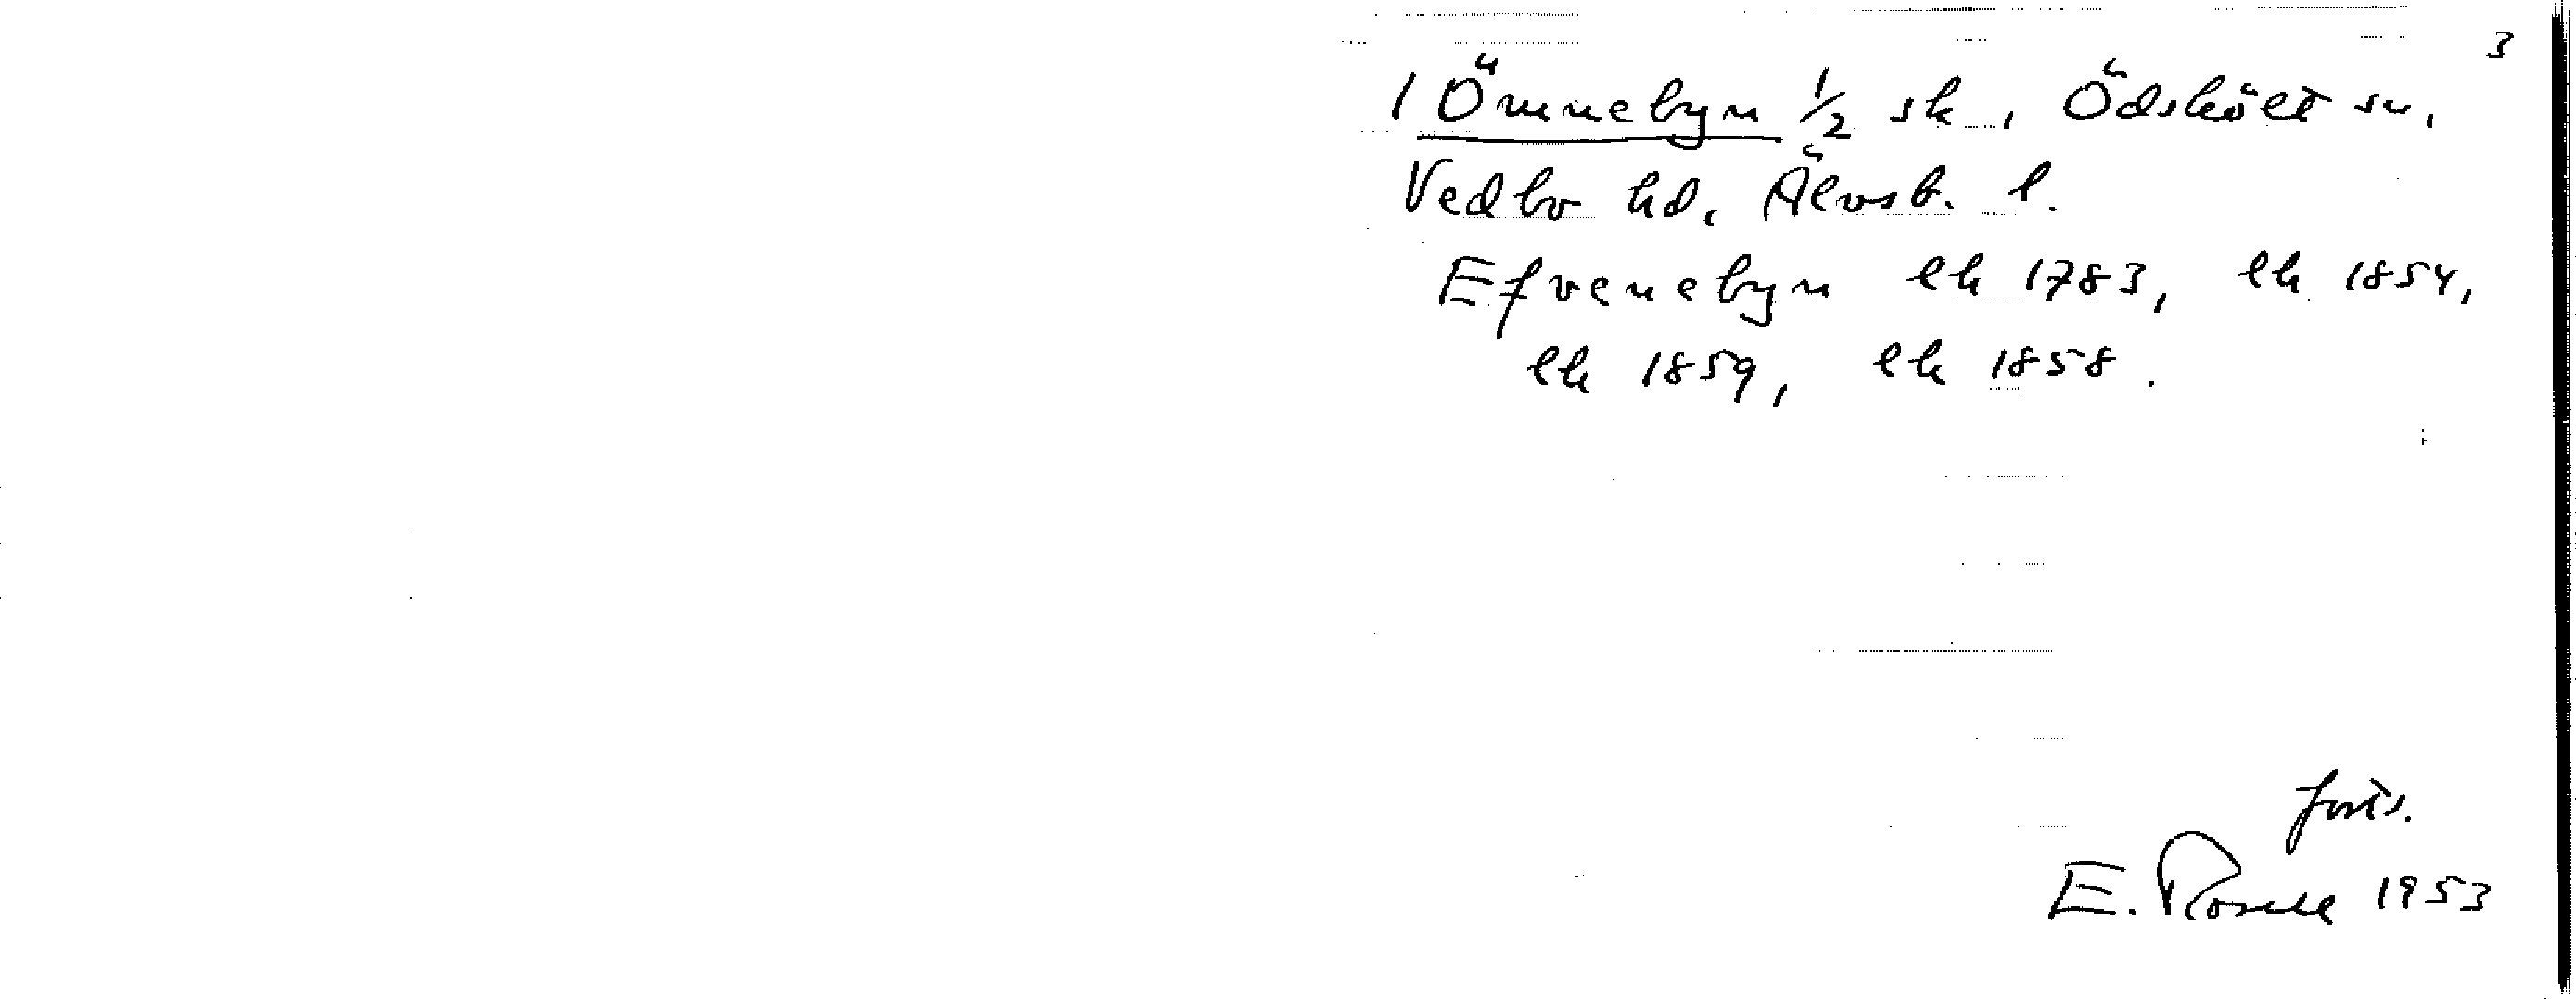 3
1 Ömnebyn 1/2 sk, Ödskölt sn,
Vedbo hd, Älvsb. l.
Efvenebyn lh 1783, lh 1854,
lh 1859, lh 1858.
forts.
E. Rosell 1953